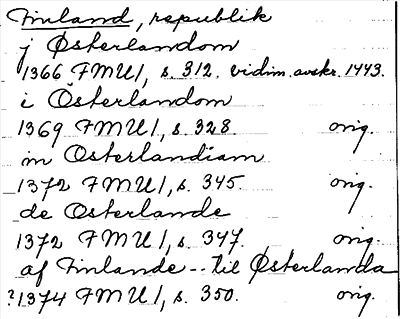 Finland, republik
j Østerlandom
1366 FMU I, s. 312. vidim. avskr. 1443.
i Österlandom
1369 FMU I, s. 328. orig.
in Osterlandiam
1372 FMU I, s. 345. orig.
de Osterlande
1372 FMU I, s. 347. orig.
af Finlande -- til Østerlanda
?1374 FMU I, s. 350. orig.